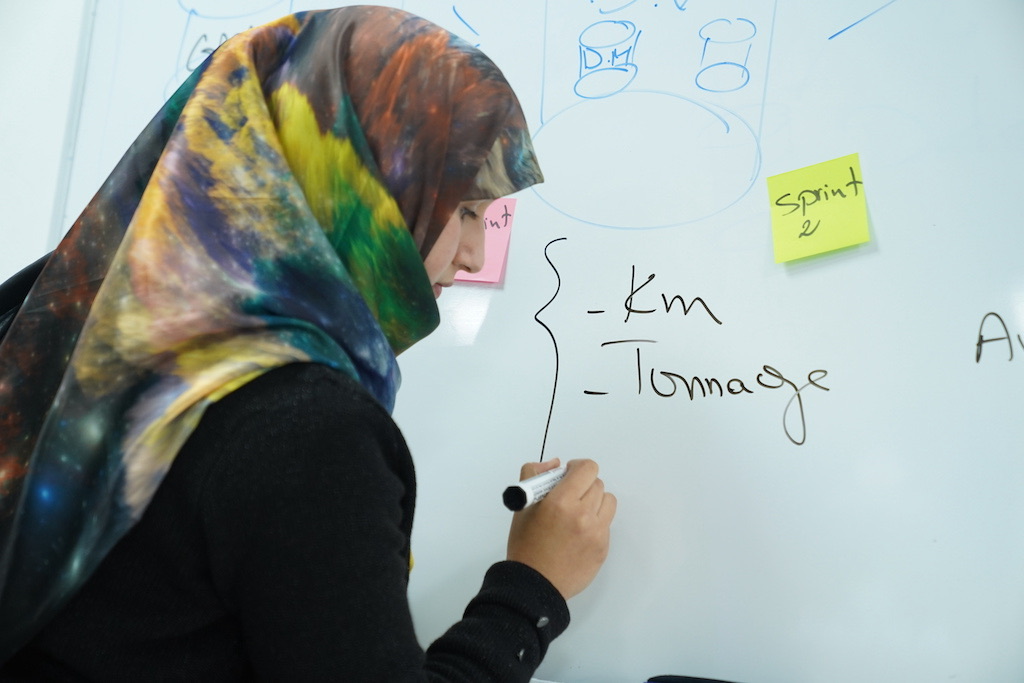 D.M
sprint
2
int
- Km
- Tonnage